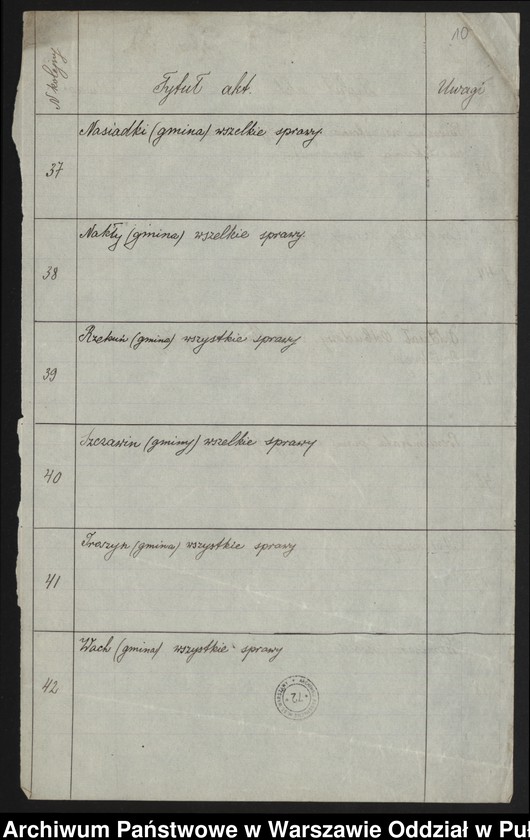 10
N kolejny
Tytuł akt.
Uwagi
37
Nasiadki (gmina) wszelkie sprawy.
38
Nakły (gmina) wszelkie sprawy.
39
Rzekuń (gmina) wszystkie sprawy
40
Szczawin (gminy) wszelkie sprawy
41
Troszyn (gmina) wszystkie sprawy
42
Wach (gmina) wszystkie sprawy
72
Archiwum Państwowe w Warszawie Oddział w Puł